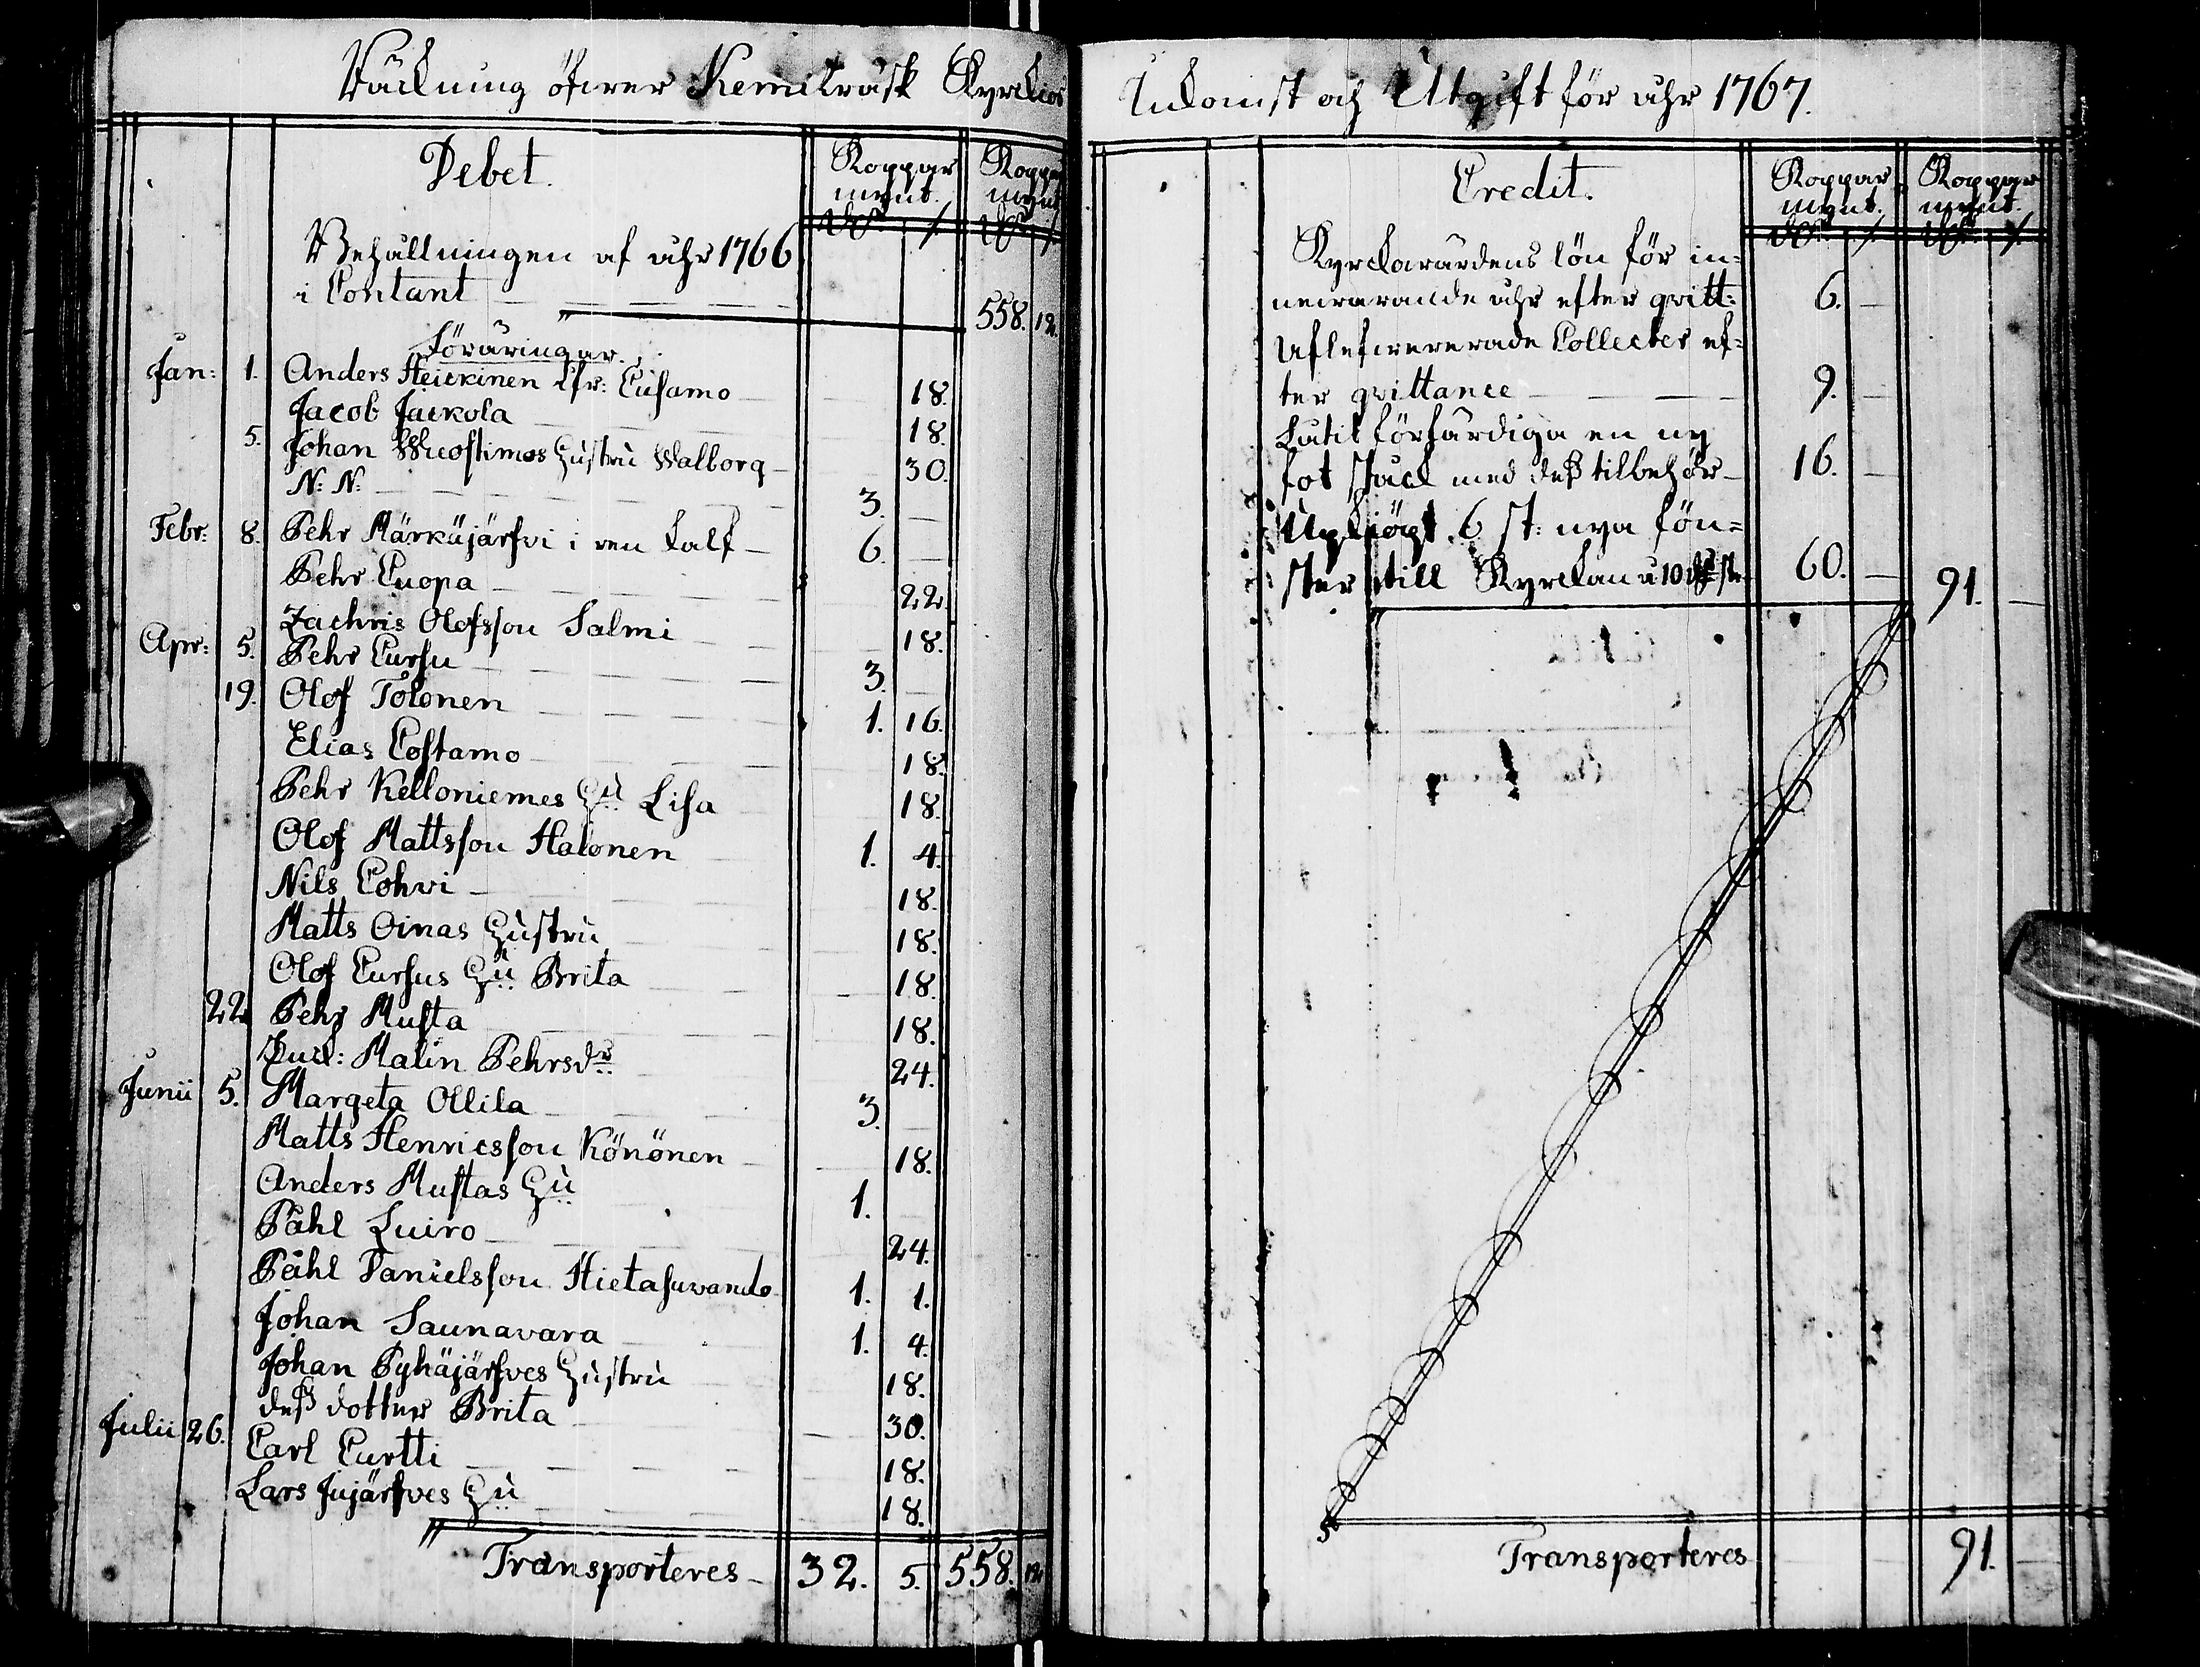 Räckning öfwer Kemiträsk Kyrckios
Debet.
Koppar mynt.
Koppar mynt
Behållningen af åhr 1766
i Contant 558. 12.
Föräringar.
Jan: 1. Anders Heickinen ifr: Cusamo 18.
Jacob Jackola 18.
5. Johan Wuostimos Hustru Walborg 30.
N: N: 3.
Febr: 8. Pehr Märkäjärfvi i ren kalf 6.
Pehr Cuopa 22.
Zachris Olofsson Salmi 18.
Apr: 5. Pehr Cursu 3.
19. Olof Tolonen 1. 16.
Elias Costamo 18.
Pehr Kelloniemes Hu Lisa 18.
Olof Mattsson Halonen 1. 4.
Nils Cohvi 18.
Matts Oinas Hustru 18.
Olof Cursus Hu Brita 18.
22. Pehr Musta 18.
Enck: Malin Pehrsdr 24.
Junii 5. Margeta Ollila 3.
Matts Henricsson Könönen 18.
Anders Mustas Hu 1.
Påhl Luiro 24.
Påhl Danielsson Hietasuvando 1. 1.
Johan Saunavara 1. 4.
Johan Pyhäjärfves Hustru 18.
dess dotter Brita 30.
Julii 26. Carl Curtti 18.
Lars Jujärfves Hu 18.
Transporteres 32. 5. 558. 12.
Inkomst och Utgift för åhr 1767.
Credit.
Koppar mynt.
Koppar mynt.
Kyrckiowärdens lön för in=
newarande åhr efter qvitt: 6.
Aflefwererade Collecter ef=
ter qvittance 9.
Låtit förfärdiga en ny
fot stäck med dess tilbehör 16.
Upkiögt 6 st: nya fön=
ster till Kyrckan a 10 dr st: 60. 91.
Transporteres 91.